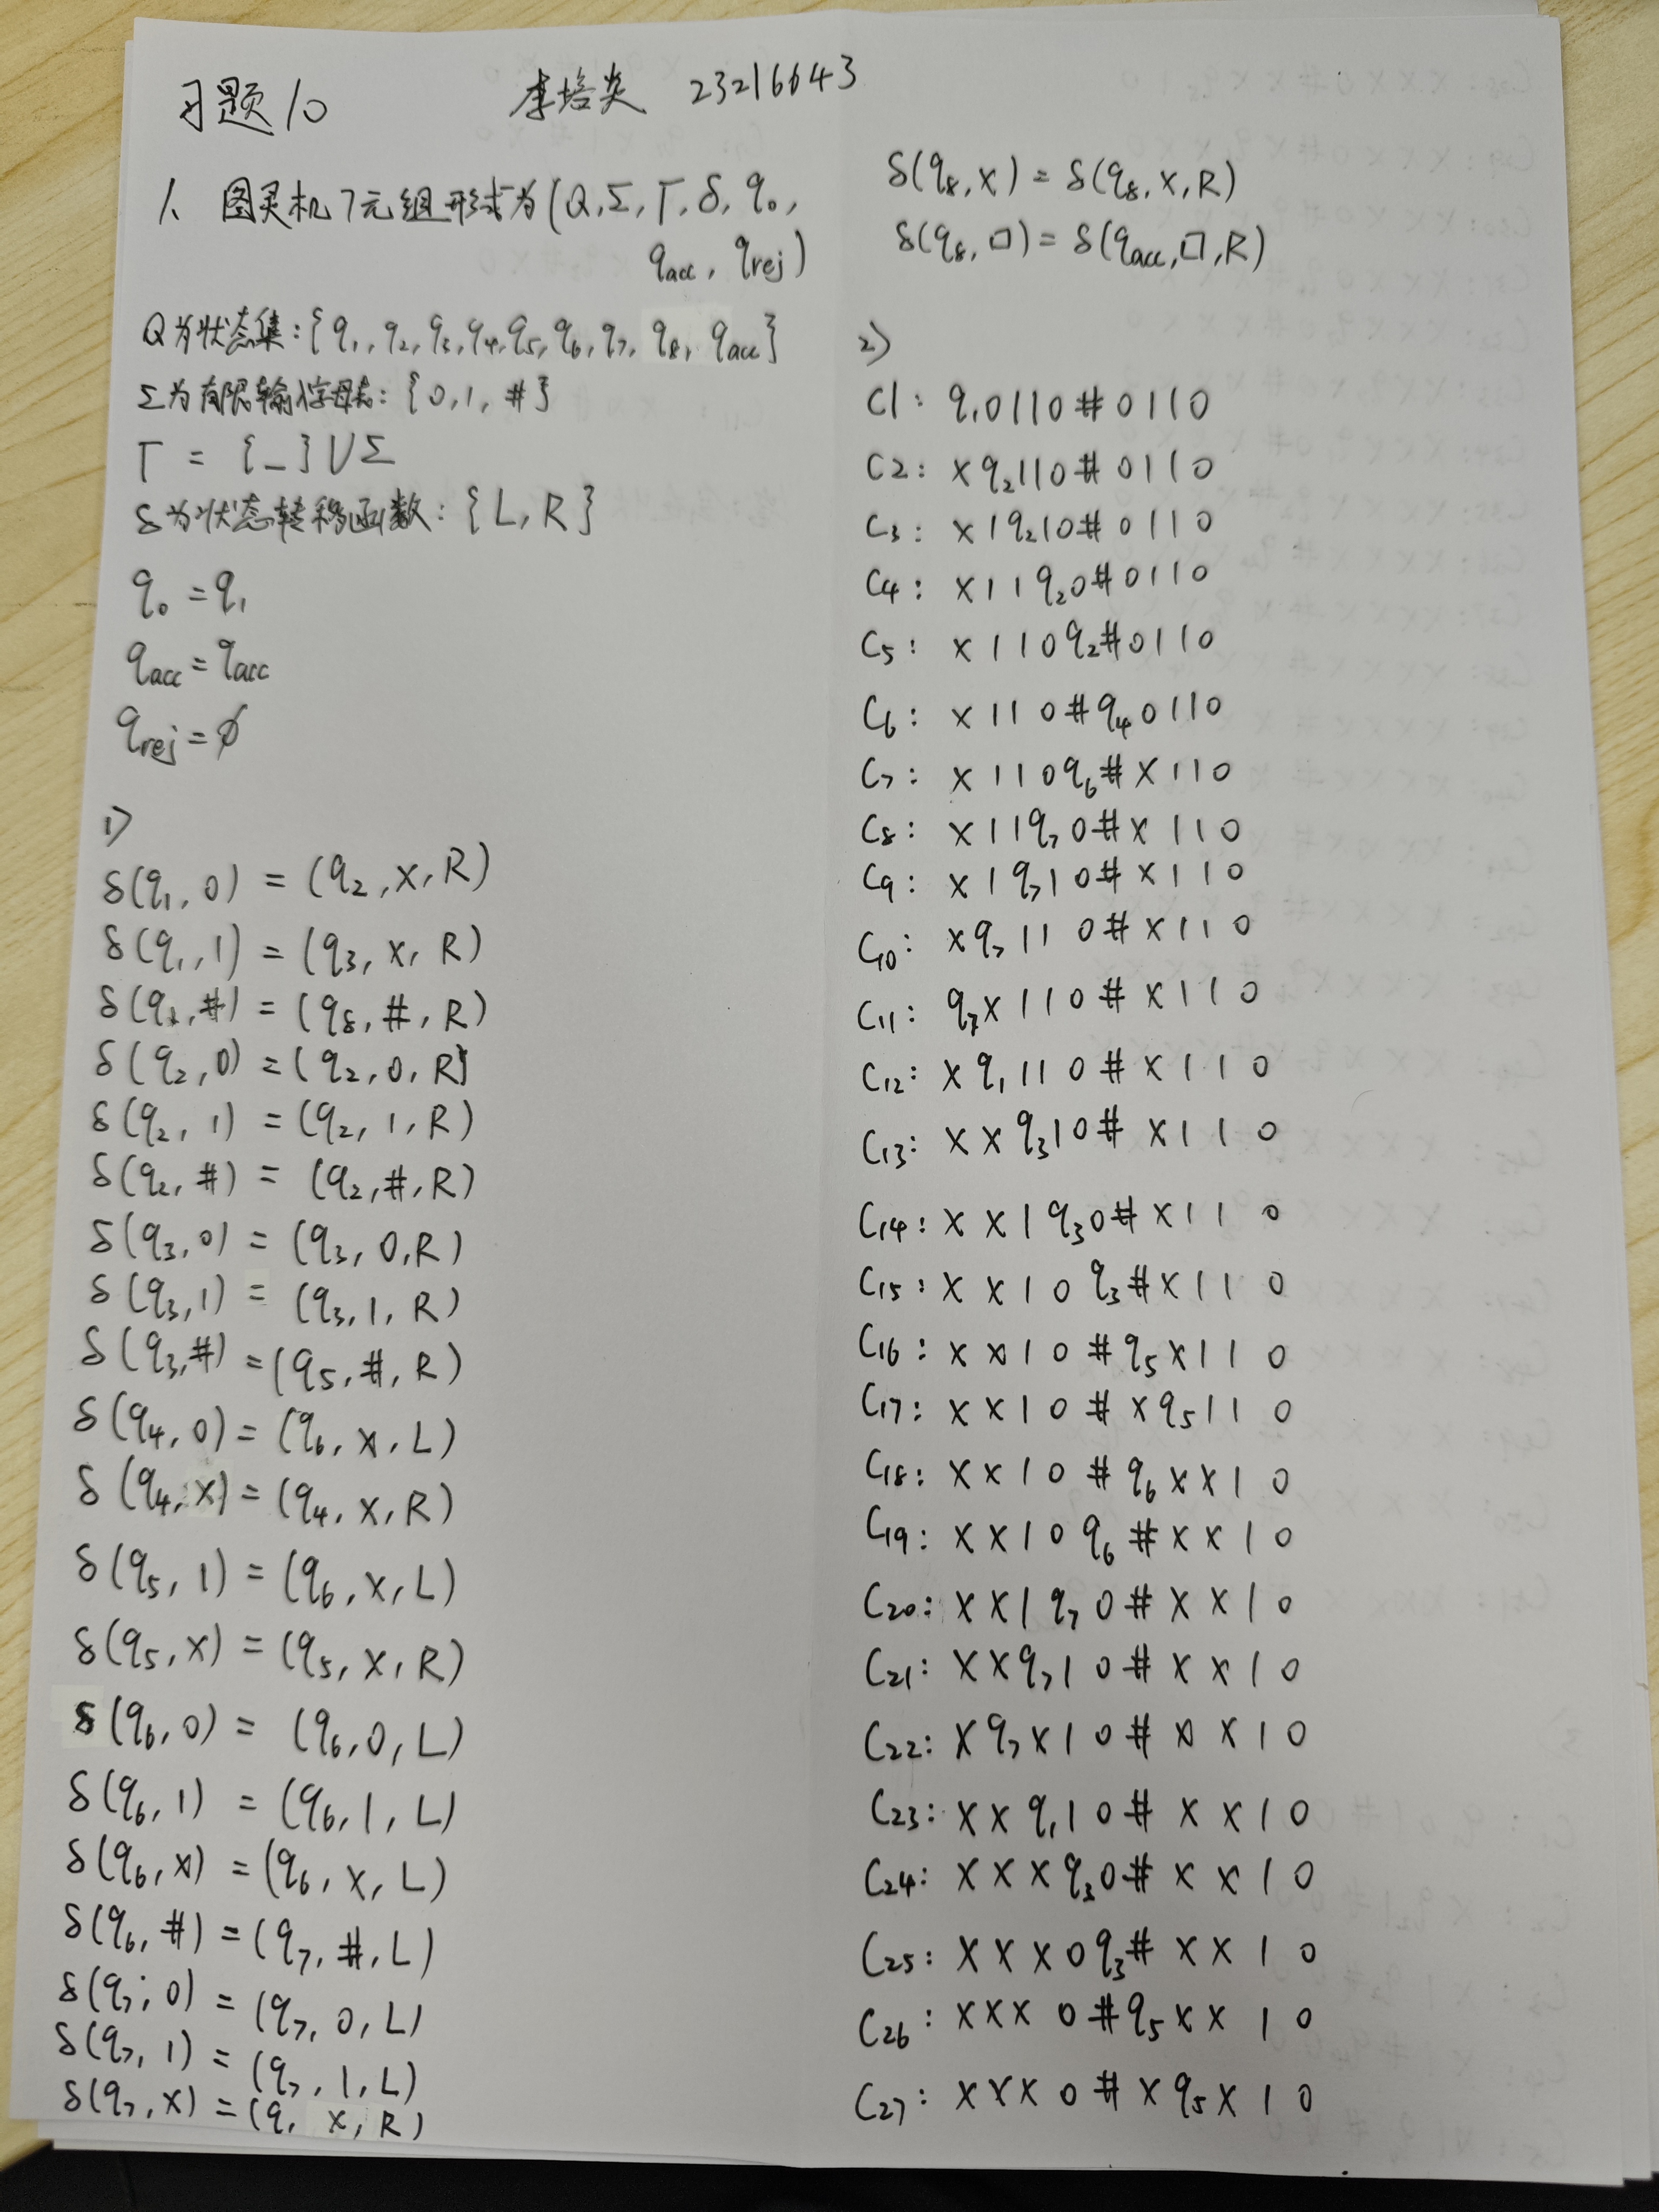 习题10 李培炎 23216643
1、图灵机7元组形式为(Q,Σ,Γ,δ,q₀,
qacc, qrej)
Q为状态集:{q₁,q₂,q₃,q₄,q₅,q₆,q₇,q₈,qacc}
Σ为有限输入字母表:{0,1,#}
Γ = {_}∪Σ
δ为状态转移函数:{L,R}
q₀=q₁
qacc=qacc
qrej=∅
1)
δ(q₁,0) = (q₂,x,R)
δ(q₁,1) = (q₃,x,R)
δ(q₁,#) = (q₈,#,R)
δ(q₂,0) = (q₂,0,R)
δ(q₂,1) = (q₂,1,R)
δ(q₂,#) = (q₂,#,R)
δ(q₃,0) = (q₃,0,R)
δ(q₃,1) = (q₃,1,R)
δ(q₃,#) = (q₅,#,R)
δ(q₄,0) = (q₆,x,L)
δ(q₄,x) = (q₄,x,R)
δ(q₅,1) = (q₆,x,L)
δ(q₅,x) = (q₅,x,R)
δ(q₆,0) = (q₆,0,L)
δ(q₆,1) = (q₆,1,L)
δ(q₆,x) = (q₆,x,L)
δ(q₆,#) = (q₇,#,L)
δ(q₇,0) = (q₇,0,L)
δ(q₇,1) = (q₇,1,L)
δ(q₇,x) = (q₁ x,R)
δ(q₈,x) = δ(q₈,x,R)
δ(q₈,□) = δ(qacc,□,R)
2)
C1: q₁0110#0110
C2: xq₂110#0110
C₃: x1q₂10#0110
C₄: x11q₂0#0110
C₅: x110q₂#0110
C₆: x110#q₄0110
C₇: x110q₆#x110
C₈: x11q₇0#x110
C₉: x1q₇10#x110
C₁₀: xq₇110#x110
C₁₁: q₇x110#x110
C₁₂: xq₁110#x110
C₁₃: xxq₃10#x110
C₁₄: xx1q₃0#x110
C₁₅: xx10q₃#x110
C₁₆: xx10#q₅x110
C₁₇: xx10#xq₅110
C₁₈: xx10#q₆xx10
C₁₉: xx10q₆#xx10
C₂₀: xx1q₇0#xx10
C₂₁: xxq₇10#xx10
C₂₂: xq₇x10#xx10
C₂₃: xxq₁10#xx10
C₂₄: xxxq₃0#xx10
C₂₅: xxx0q₃#xx10
C₂₆: xxx0#q₅xx10
C₂₇: xxx0#xq₅x10